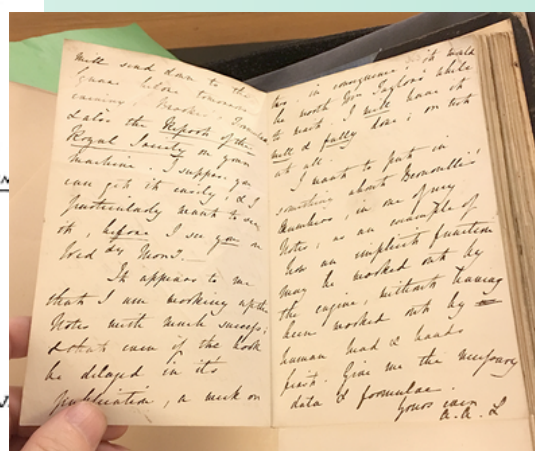 will send down to the
Square before tomorrow
evening, Brooke's Formulae
& also the Report of the
Royal Society on your
machine. I suppose you
can get it easily, & I
particularly want to see
it, before I see you on
Wed'dy Morng.—
It appears to me
that I am working up the
Notes with much success;
& that even if the book
be delayed in it's
publication, a week or
two, in consequence, it would
be worth Mr Taylor's while
to wait. I will have it
well & fully done; or not
at all.
I want to put in
something about Bernoulli's
Numbers, in one of my
Notes, as an example of
how an implicit function
may be worked out by
the engine, without having
been worked out by
human head & hands
first. Give me the necessary
data & formulae.
Yours ever
A.A.L